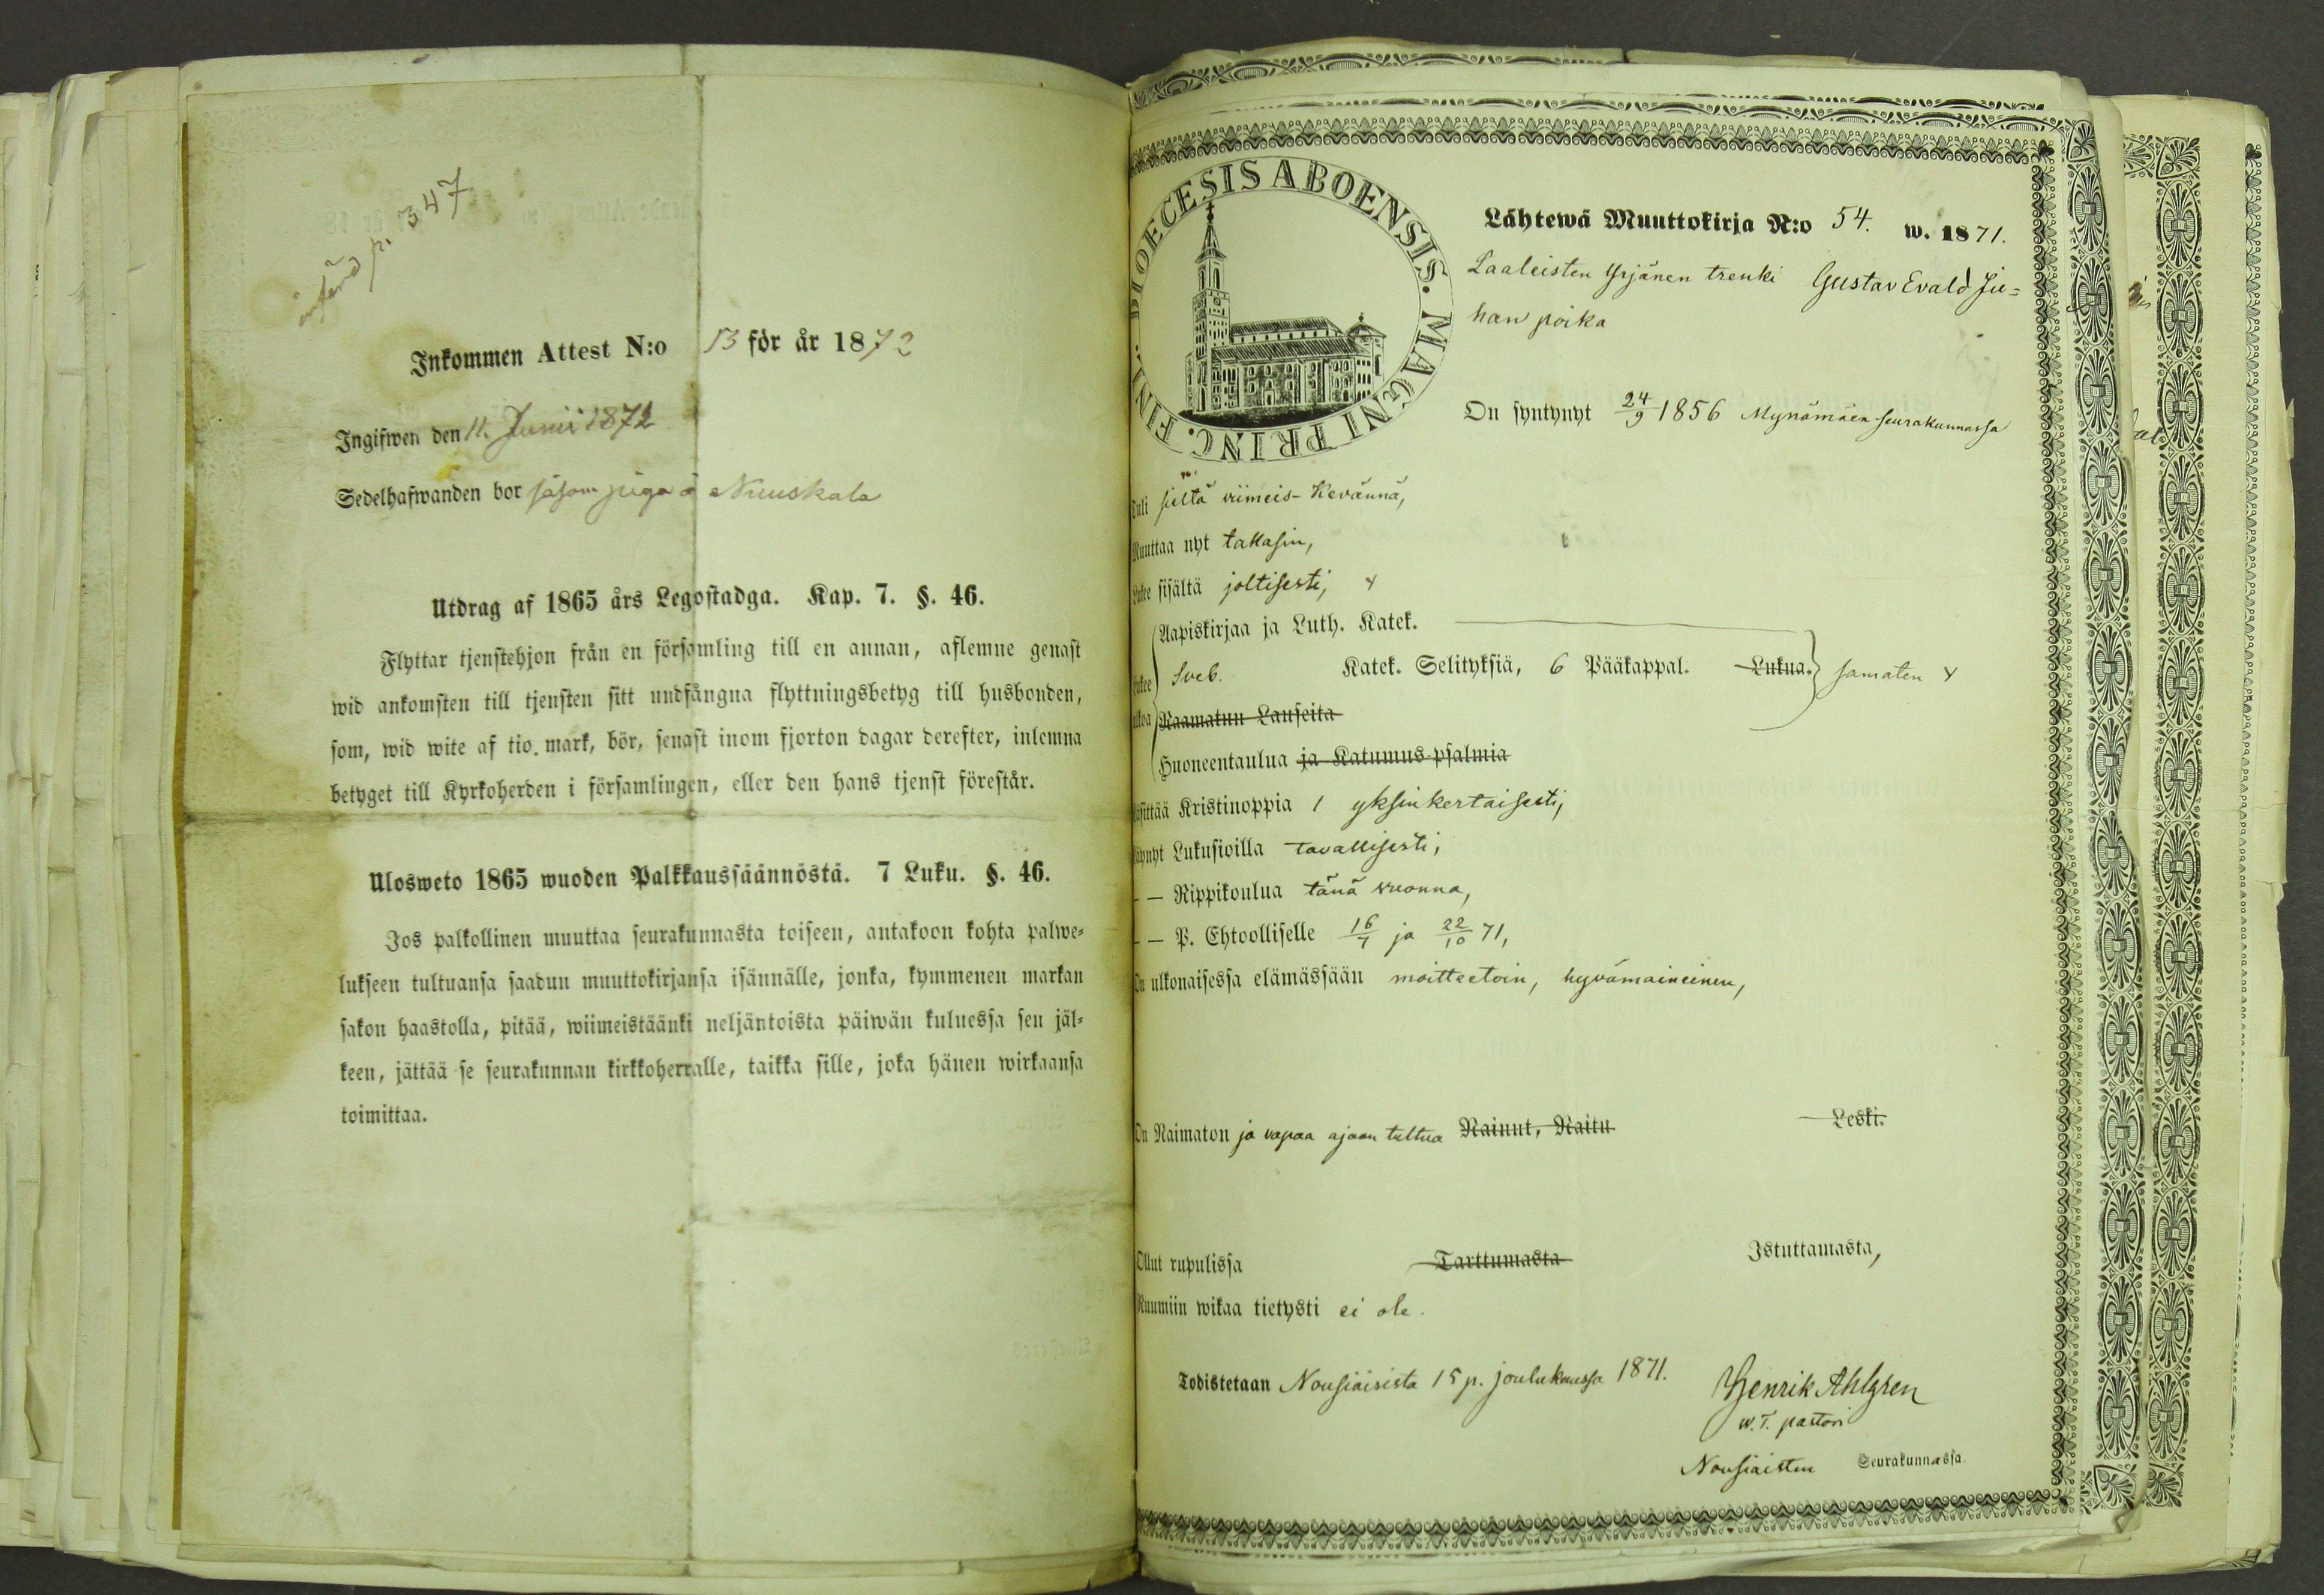 införd p. 347
Inkommen Attest N:o 13 för år 1872
Ingifwen den 11. Junii 1872
Sedelhafwanden bor såsom piga å Nuuskala
Utdrag af 1865 års Legostadga. Kap. 7. §. 46.
Flyttar tjenstehjon från en församling till en annan, aflemne genast
wid ankomsten till tjensten sitt undfångna flyttningsbetyg till husbonden,
som, wid wite af tio mark, bör, senast inom fjorton dagar derefter, inlemna
betyget till Kyrkoherden i församlingen, eller den hans tjenst förestår.
Ulosweto 1865 wuoden Palkkaussäännöstä. 7 Luku. §. 46.
Jos palkollinen muuttaa seurakunnasta toiseen, antakoon kohta palwe-
lukseen tultuansa saadun muuttokirjansa isännälle, jonka, kymmenen markan
sakon haastolla, pitää, wiimeistäänki neljäntoista päiwän kuluessa sen jäl-
keen, jättää se seurakunnan kirkkoherralle, taikka sille, joka hänen wirkaansa
toimittaa.
DIOECESIS ABOENSIS. MAGNI PRINC. FINL.
Lähtewä Muuttokirja N:o 54. w. 1871.
Laaleisten Yrjänen trenki Gustav Evald Ju-
han poika
On syntynyt 24/9 1856 Mynämäen seurakunnassa
Tuli sieltä viimeis-Kevännä,
Muuttaa nyt takasin,
Lukee sisältä joltisesti,
Aapiskirjaa ja Luth. Katek.
Sveb. Katek. Selityksiä, 6 Pääkappal. Lukua. samaten
Raamatun Lauseita
Huoneentaulua ja Katumus-psalmia
Käsittää Kristinoppia yksinkertaisesti,
Käynyt Lukusioilla tavallisesti,
— — Rippikoulua tänä vuonna,
— — P. Ehtoolliselle 16/7 ja 22/10 71,
On ulkonaisessa elämässään moitteetoin, hyvämaineinen,
On Naimaton ja vapaa ajaan tultua Nainut, Naitu Leski.
Ollut rupulissa Tarttumasta Istuttamasta,
Ruumiin wikaa tietysti ei ole.
Todistetaan Nousiäisista 15 p. joulukuussa 1871. Henrik Ahlgren
w. T. pastori
Nousiaisten Seurakunnassa.